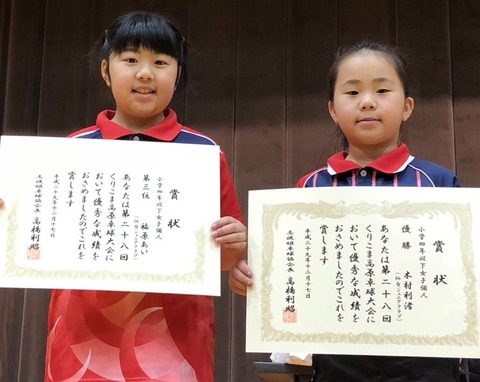 賞状
小学四年以下女子個人
第三位 福原あい
(仙台ジュニアクラブ)
あなたは第二十八回
くりこま高原卓球大会に
おいて優秀な成績を
おさめましたのでこれを
賞します
平成二十九年十二月十七日
高橋利昭
賞状
小学四年以下女子個人
優勝 木村利渚
(仙台ジュニアクラブ)
あなたは第二十八回
くりこま高原卓球大会に
おいて優秀な成績を
おさめましたのでこれを
賞します
平成二十九年十二月十七日
高橋利昭